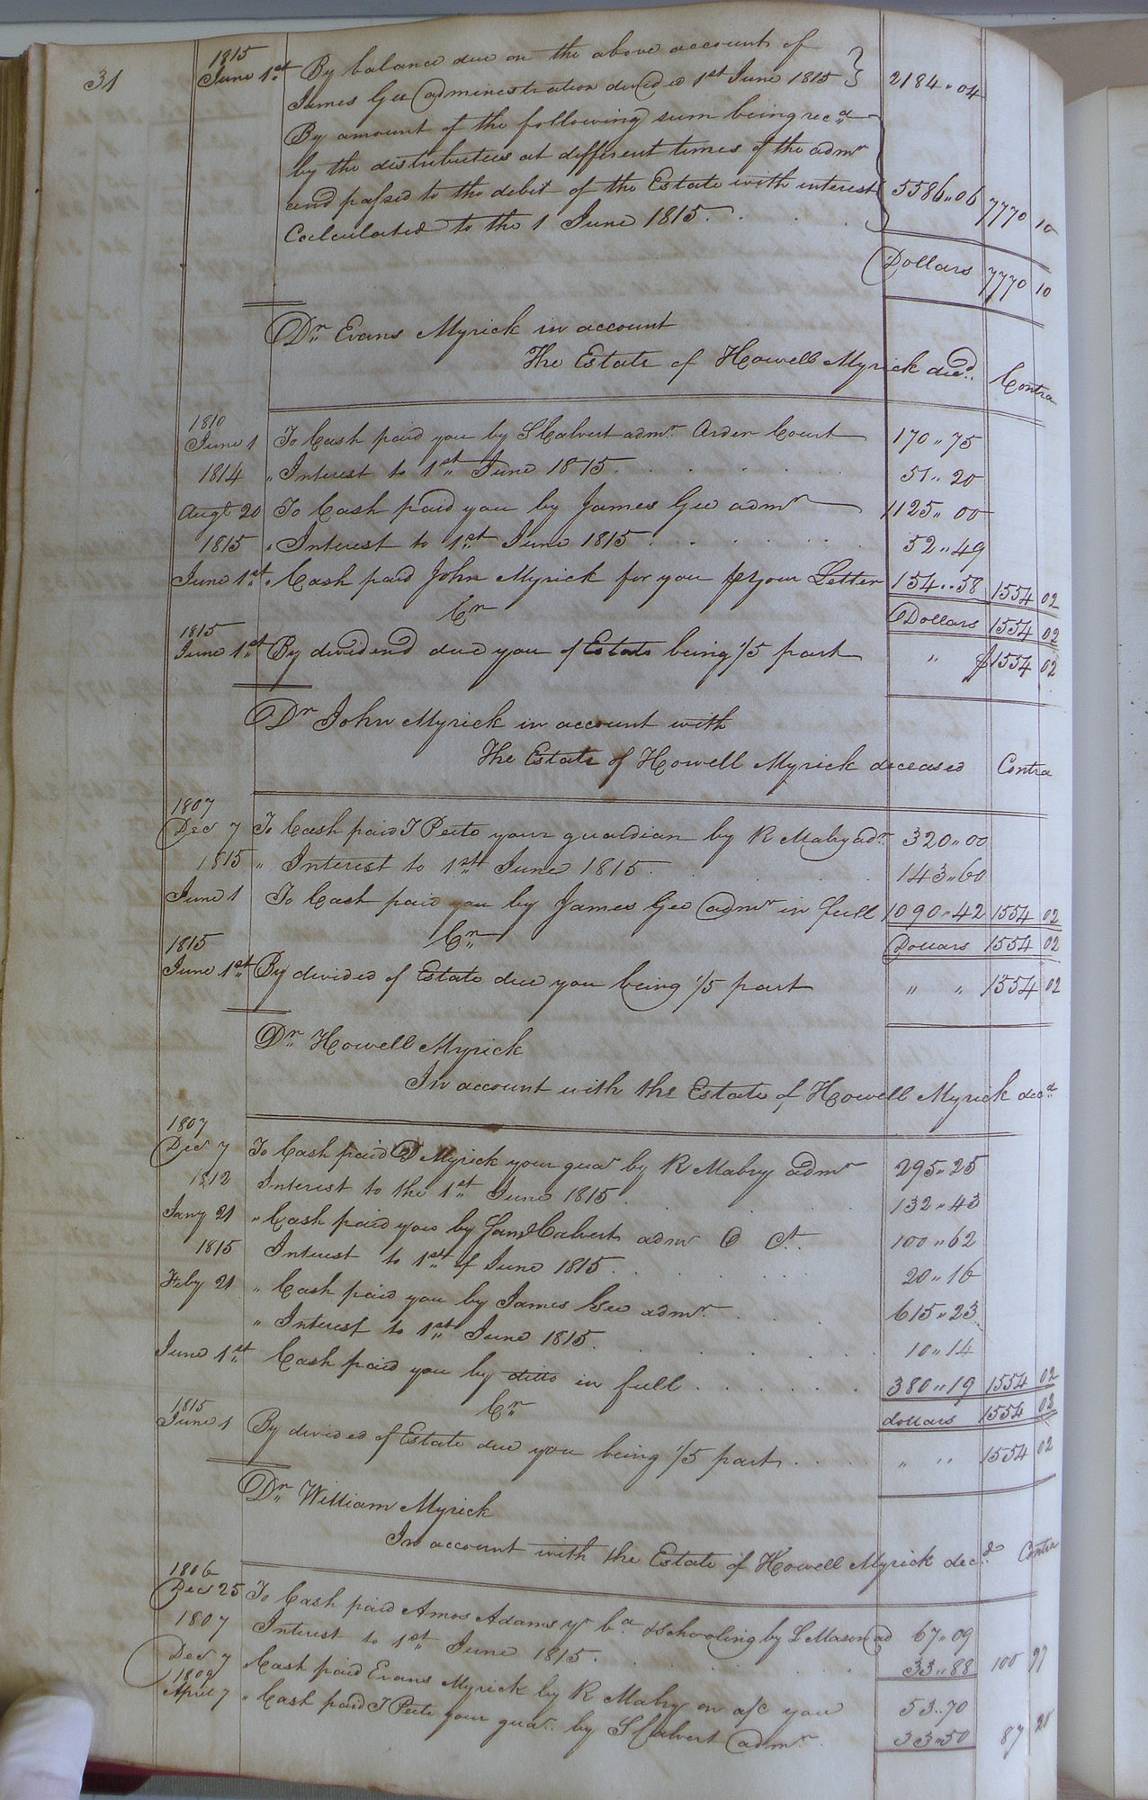 31
1815
June 1st By balance due on the above account of
James Gee administration divided 1st June 1815 } 2184 " 04
By amount of the following sum being recd
by the distributees at different times of the admr
and passed to the debit of the Estate with interest 5586 " 06 7770 10
Calculated to the 1 June 1815 . . .
Dollars 7770 10
Dr Evans Myrick in account
The Estate of Howell Myrick decd. Contra
1810
June 1 To Cash paid you by S Calvert admr Order Court 170 " 75
1814 " Interest to 1st June 1815 . . . . . 51 " 20
Augt 20 To Cash paid you by James Gee admr 1125 " 00
1815 " Interest to 1st June 1815 . . . . . 52 " 49
June 1st " Cash paid John Myrick for you pr your Letter 154 " 58 1554 02
Cr Dollars 1554 02
1815
June 1st By dividend due you of Estate being 1/5 part " $1554 02
Dr John Myrick in account with
The Estate of Howell Myrick deceased Contra
1807
Decr 7 To Cash paid T Peete your guardian by R Mabry adr 320 " 00
1815 " Interest to 1st June 1815 . . . 143 " 60
June 1 To Cash paid you by James Gee admr in full 1090 " 42 1554 02
Cr Dollars 1554 02
1815
June 1st By divided of Estate due you being 1/5 part " " 1554 02
Dr Howell Myrick
In account with the Estate of Howell Myrick decd
1807
Decr 7 To Cash paid D Myrick your guar by R Mabry admr 295 " 25
1812 Interest to the 1st June 1815 . . . 132 " 43
Jany 21 " Cash paid you by Calvert admr O Ct. 100 " 62
1815 Interest to 1st of June 1815 . . . . 20 " 16
Feby 21 " Cash paid you by James Gee admr . . . 615 " 23
" Interest to 1st June 1815 . . . . 10 " 14
June 1st Cash paid you by ditto in full . . . . . . 380 " 19 1554 02
Cr dollars 1554 02
1815
June 1 By divided of Estate due you being 1/5 part . . . " " 1554 02
Dr William Myrick
In account with the Estate of Howell Myrick decd Contra
1806
Decr 25 To Cash paid Amos Adams yr & Schooling by L Mason ad 67 " 09
1807 Interest to 1st June 1815 . . . . . 33 " 88 100 97
Decr 7 Cash paid Evans Myrick by R Mabry on a/c you 53 " 70
1809
April 7 " Cash paid T Peete your guar. by S Calvert admr. 33 " 50 87 20